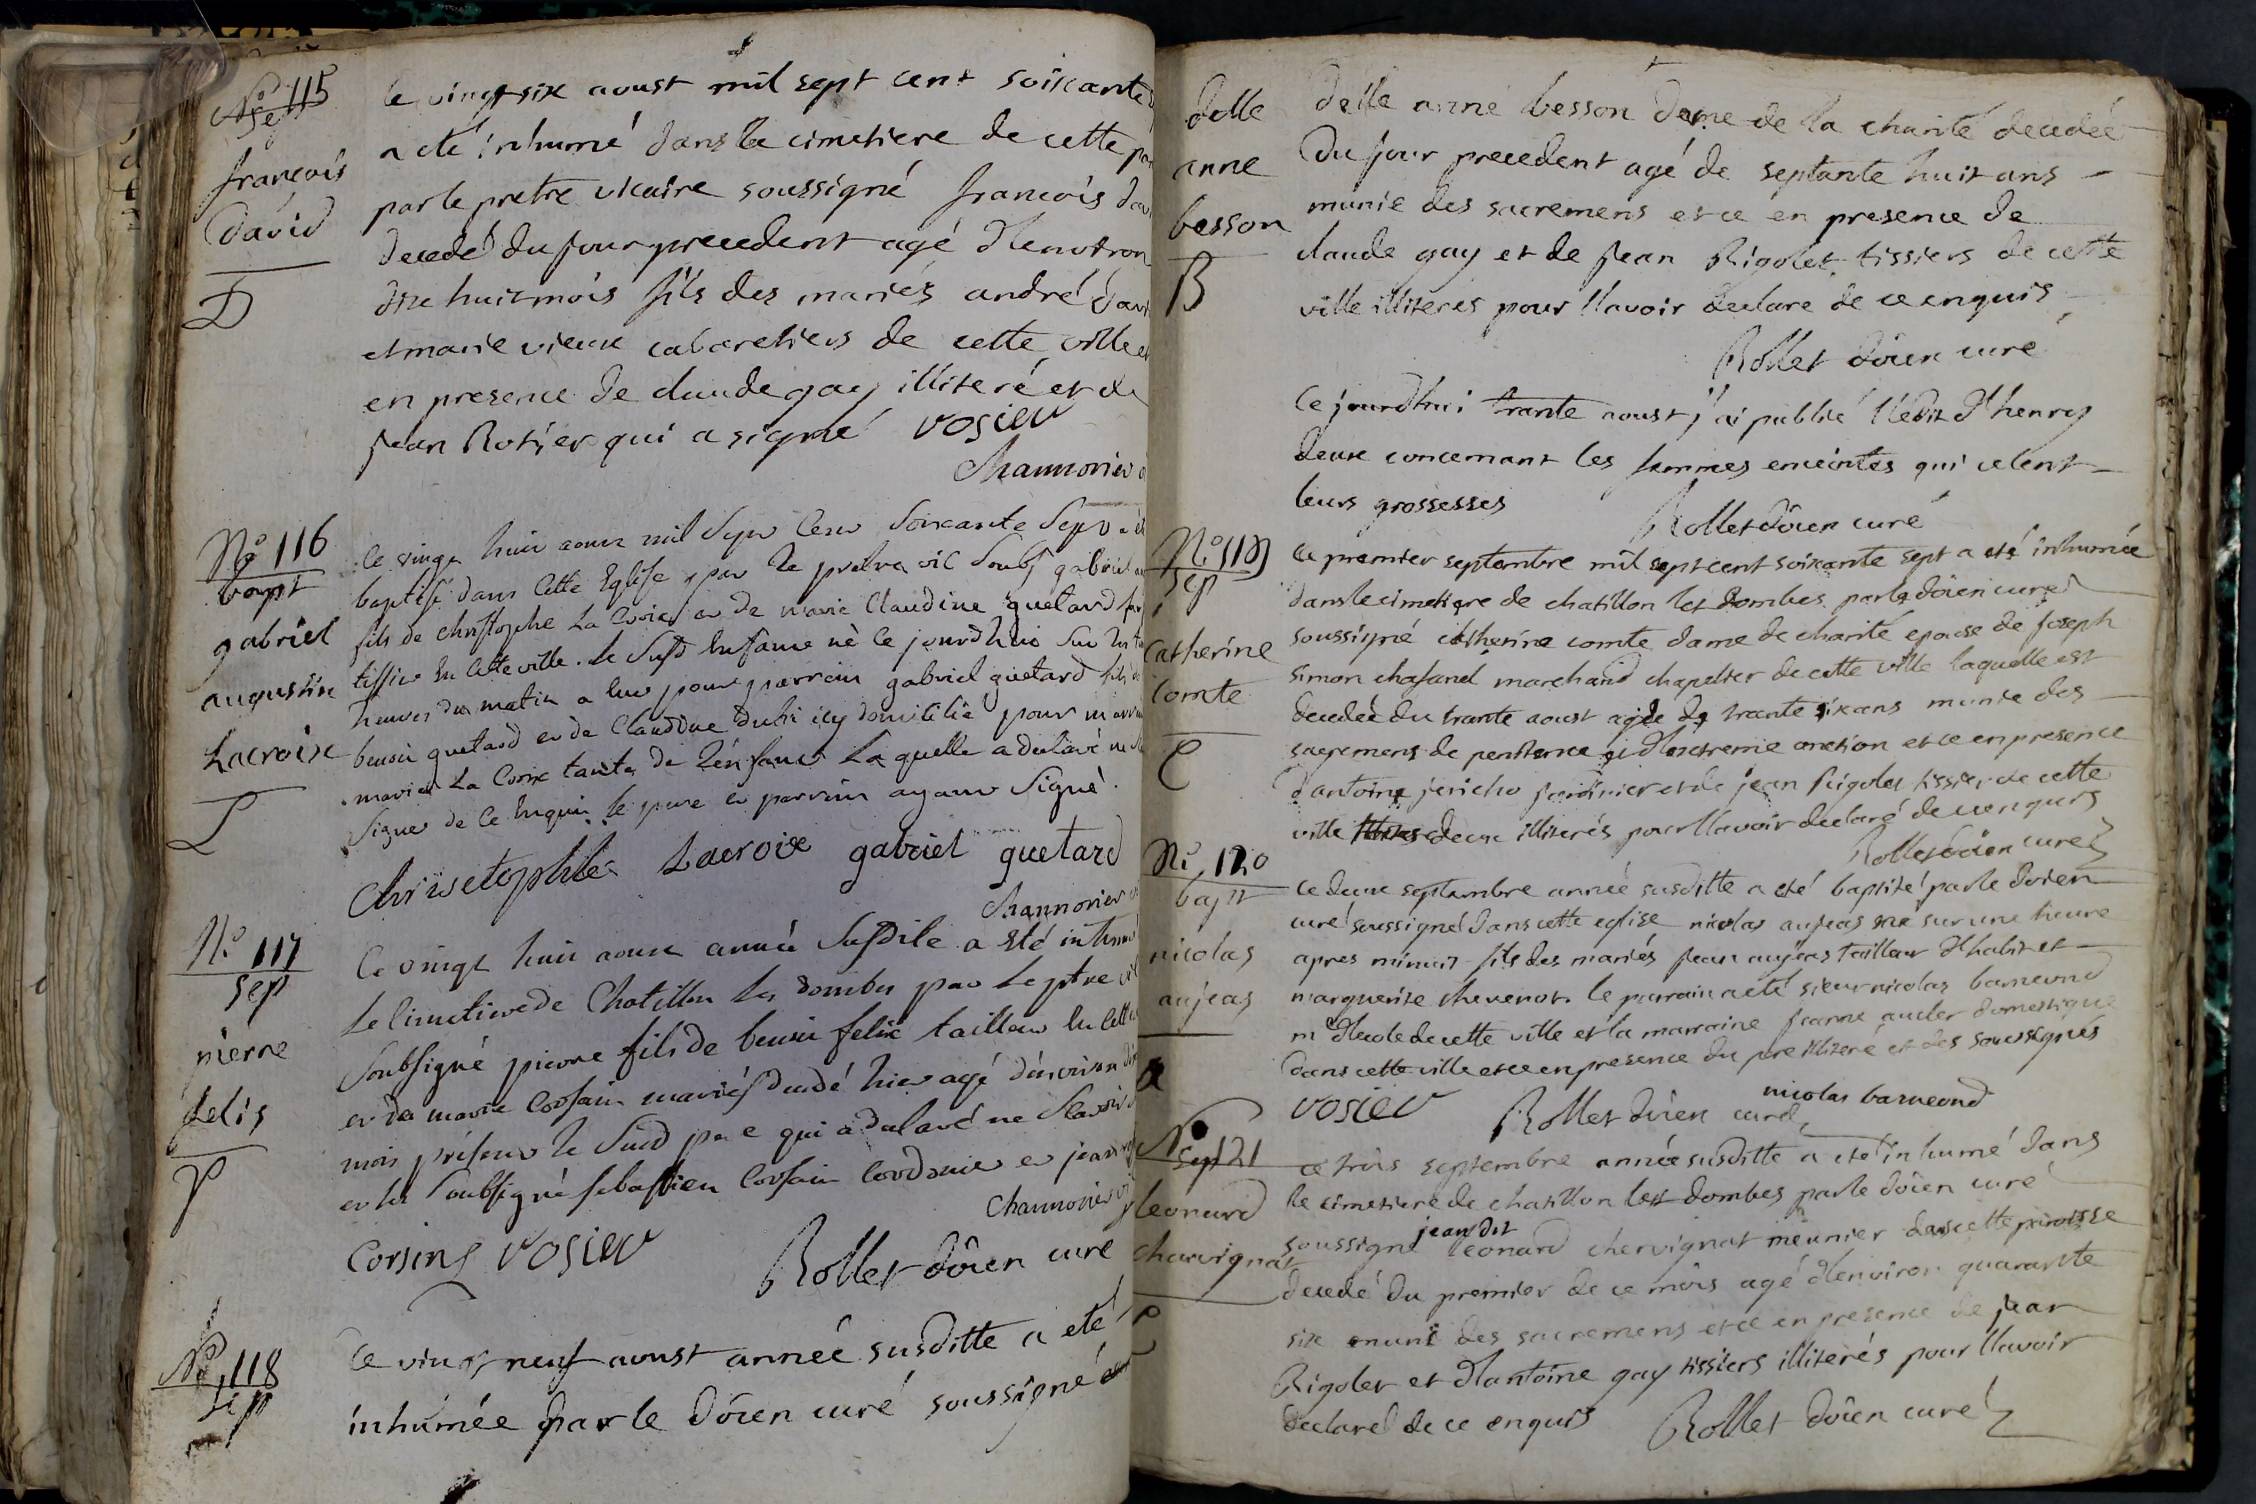 N° 115
sep
françois
david
D
le vingt six aoust mil sept cent soixante
a eté inhumé dans le cimetiere de cette
par le pretre vicaire soussigné françois
decedé du jour precedent agé d'environ
dixe huit mois fils des mariés andré
et marie vieux cabaretiers de cette ville
en presence de claude gay illiteré et de
jean Rotier qui a signé vosieu
Channorier
N° 116
bapt
gabriel
augustin
Lacroix
L
ce vingt huit aoust mil sept cent soixante sept
baptisé dans cette Eglise par le pretre vic soubs gabriel
fils de christophe La Croix et de marie Claudine guetard
tissier en cette ville. le susd Enfant né ce jourdhui sur les
heures du matin a eu pour parrain gabriel guetard fils
benoit guetard et de Claudine icy domicilié pour
marie La Croix tante de l'enfant Laquelle a declaré ne
signer de ce Enquis le pere et parrain ayant signé.
Chrisetophle Lacroix gabriel guetard
Channorier
N° 117
sep
pierre
felis
P
Ce vingt huit aoust année susdite a été inhumé
Le cimetiere de Chatillon les dombes par le ptre
soubsigné pierre fils de benoit felix tailleur en cette
et de marie Corsain mariés decedé hier agé d'environ
mois présent le susd pere qui a declaré ne scavoir
et les soubsigné sebastien Corsain Cordonier et jean
Channorier
Corsing vosieu
Rollet doïen curé
N° 118
sep
ce vingt neuf aoust année susditte a eté
inhumée par le doïen curé soussigné
delle
anne
besson
B
delle anne besson dame de la charité decedeé
du jour precedent agé de septante huit ans
munie des sacremens et ce en presence de
claude gay et de jean Rigolet tissiers de cette
ville illiteres pour l'avoir declaré de ce enquis
Rollet doïen curé
Cejourdhui trante aoust j'ai publié l'edit d'henry
deux concernant les femmes enceintes qui celent
leurs grossesses
Rollet doïen curé
N° 119
sep
Catherine
Comte
C
ce premier septembre mil sept cent soixante sept a eté inhumée
dans le cimetiere de chatillon les dombes par le doïen curé
soussigné catherine comte dame de charité epouse de joseph
simon chasanel marchand chapelier de cette ville laquelle est
decedeé du trante aoust agée de trante six ans munie des
sacremens de penitence et d'extreme onction et ce en presence
d'antoine jericho jardinier et de jean Rigolet tissier de cette
ville deux illiterés pour l'avoir declaré de ce enquis
Rollet doïen curé
N° 120
bapt
nicolas
aujeas
A
ce deux septembre année susditte a eté baptisé par le doïen
curé soussigné dans cette eglise nicolas aujeas né sur une heure
apres minuit fils des mariés jean aujeas tailleur d'habit et
marguerite chevenot. le parrain a eté sieur nicolas barneond
m d'ecole de cette ville et la marraine jeanne domestique
dans cette ville et ce en presence du pere illiteré et des soussignés
nicolas barneond
vosieu Rollet doïen curé
N° 121
sep
leonard
charvignat
ce trois septembre année susditte a eté inhumé dans
le cimetiere de chatillon les dombes par le doïen curé
soussigné jean dit leonard chervignat meunier dans cette paroisse
decedé du premier de ce mois agé d'environ quarante
six muni des sacremens et ce en presence de jean
Rigolet et d'antoine gay tissiers illiterés pour l'avoir
declaré de ce enquis Rollet doïen curé